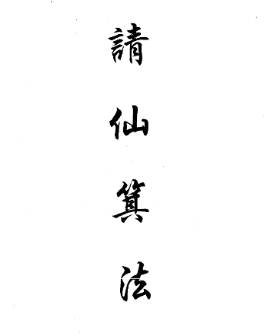 請仙箕法